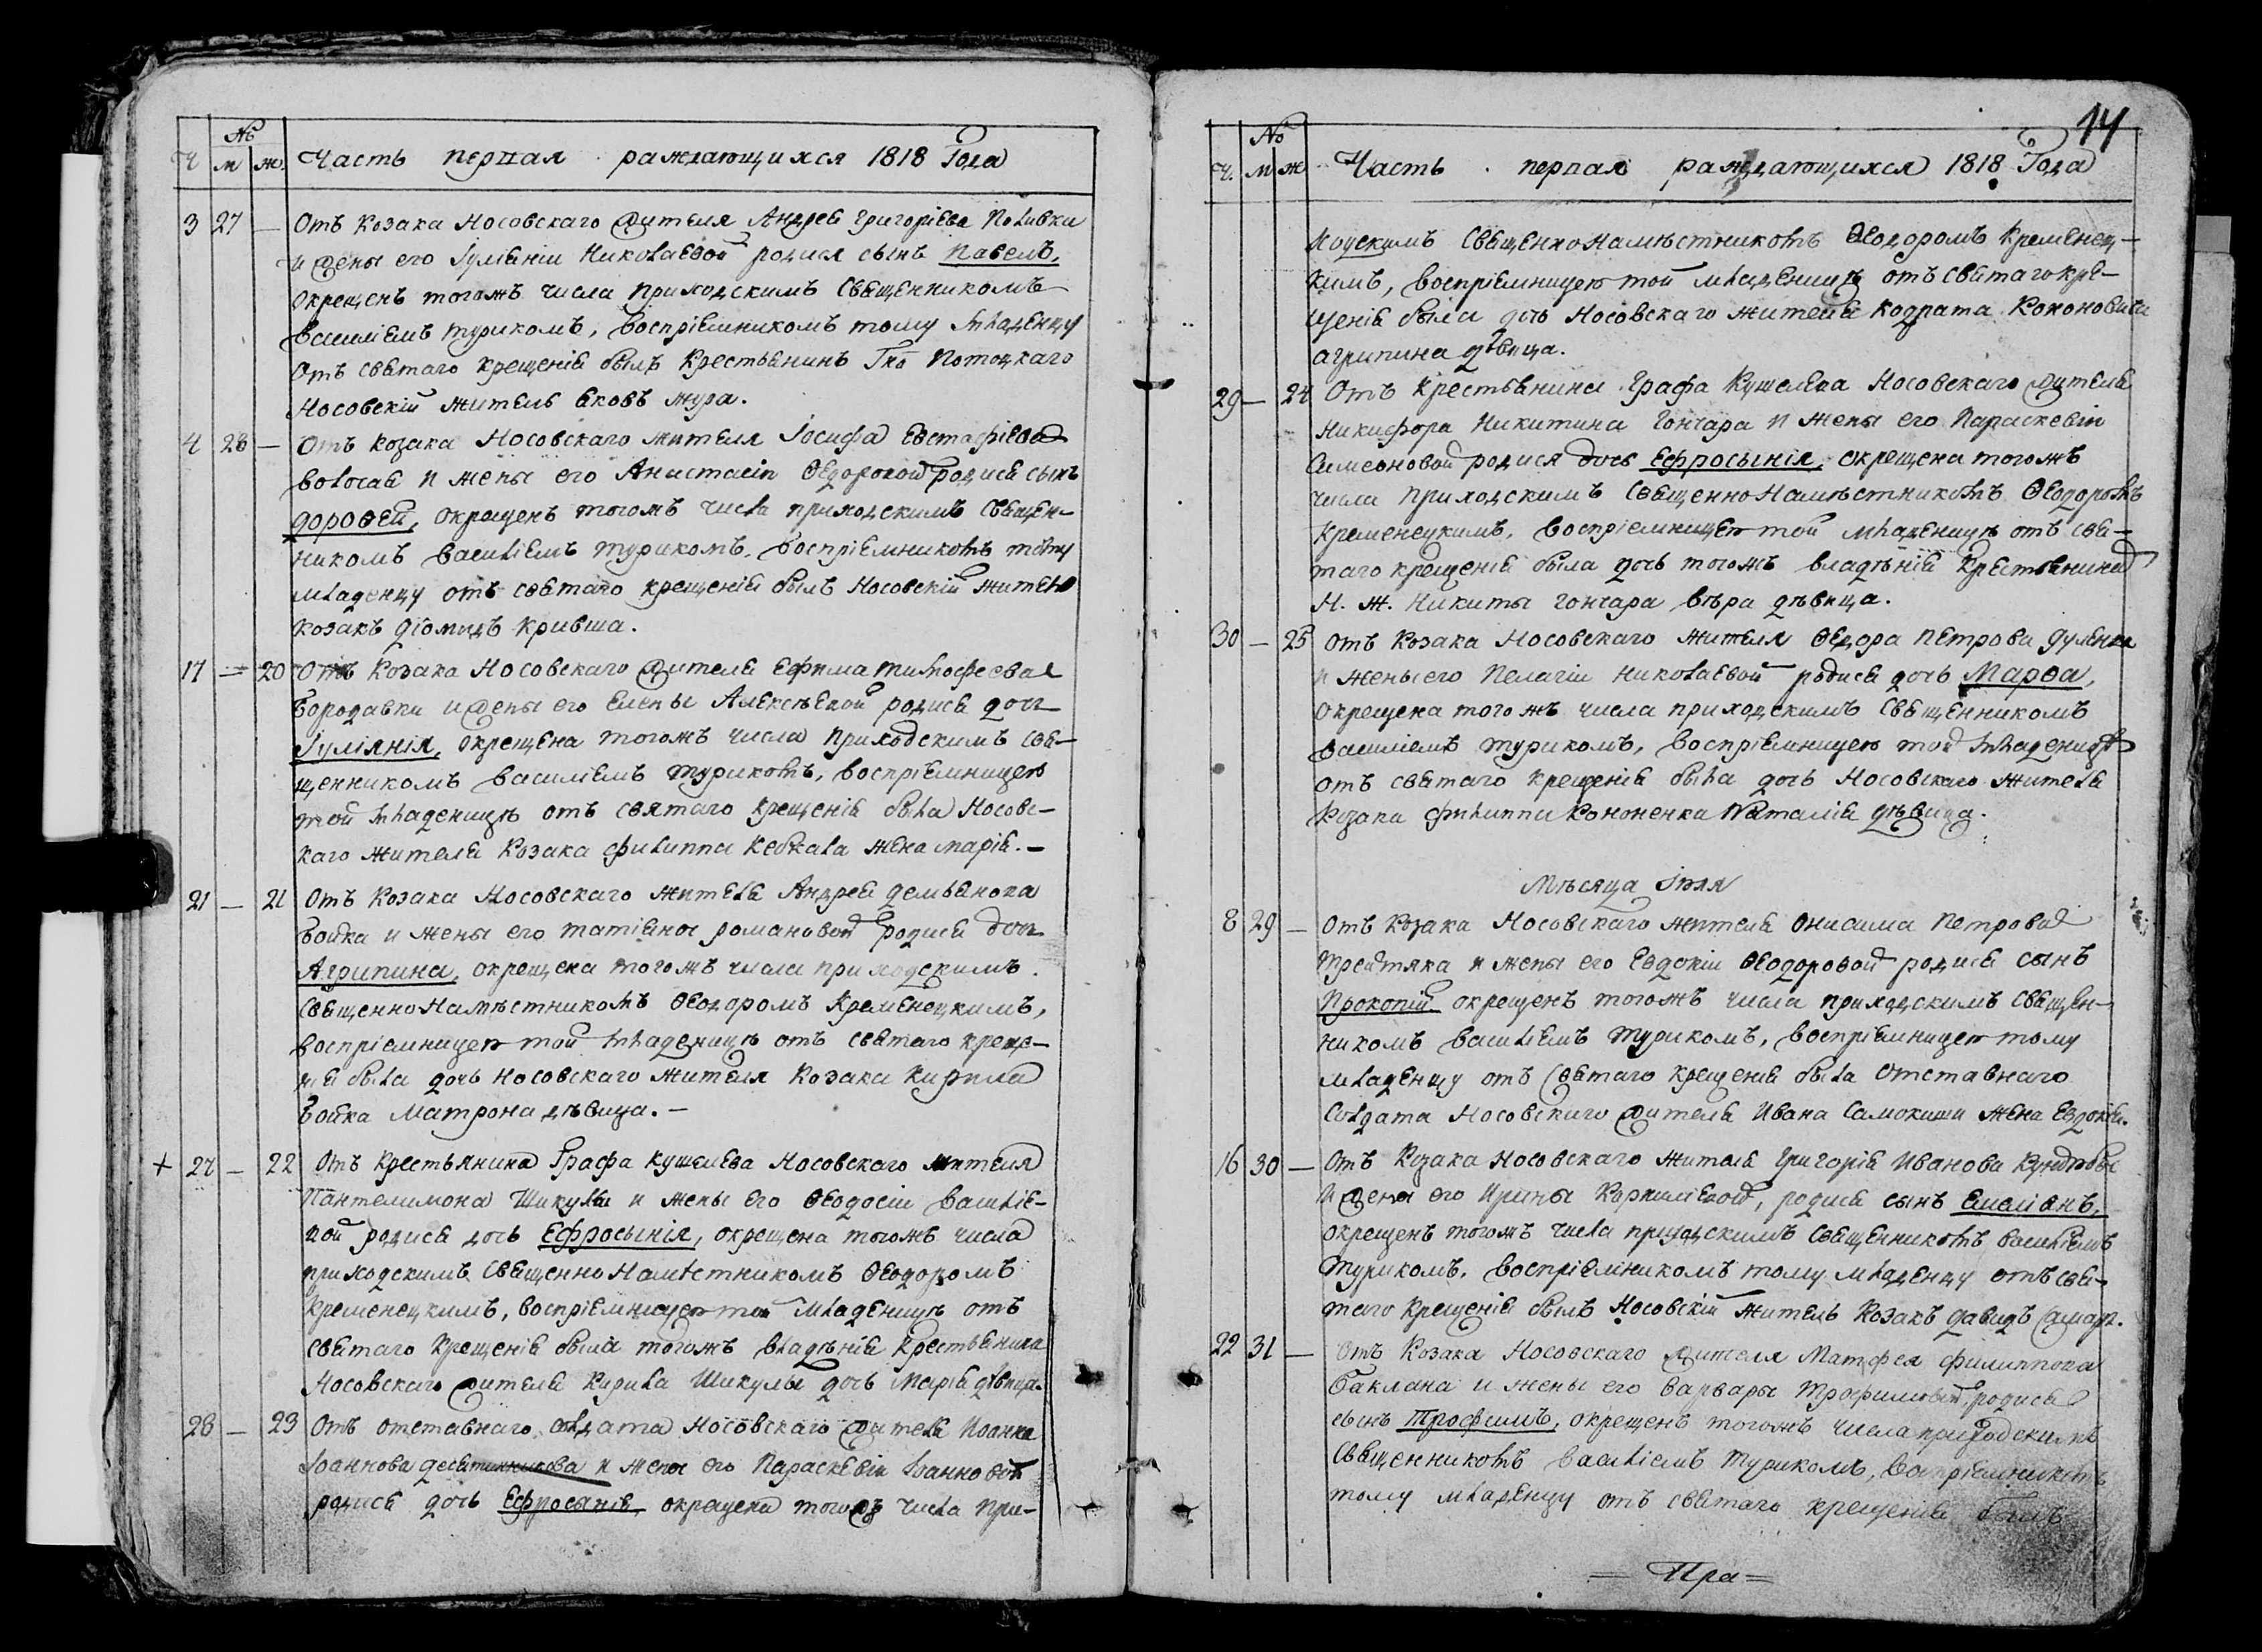 №
Ч м ж. Часть первая раждающихся 1818 Года
3 27 — Отъ Козака Носовскаго жителя Андрея Григоріева
и жены его Іуліяніи Николаевой родися сынъ Павелъ,
окрещенъ тогожъ числа приходскимъ Священникомъ
Василіемъ Турикомъ, воспріемникомъ тому младенцу
отъ святаго крещенія былъ Крестьянинъ Гна Потоцкаго
Носовскій житель Яковъ Жура.
4 28 — Отъ козака Носовскаго жителя Іосифа Евстафіева
и жены его Анастасіи Ѳедоровой родися сынъ
Дороѳей, окрещенъ тогожъ числа приходскимъ Священ-
никомъ Василіемъ Турикомъ, воспріемникомъ тому
младенцу отъ святаго крещенія былъ Носовскій житель
козакъ Діомидъ Кривша.
17 — 20 Отъ Козака Носовскаго жителя Ефима Тимофеева
Бородавки и жены его Елены Алексѣевой родися дочь
Іуліянія, окрещена тогожъ числа приходскимъ свя-
щенникомъ Василіемъ Турикомъ, воспріемницею
той младеницѣ отъ святаго крещенія была Носовс-
каго жителя Козака Филиппа жена Марія. —
21 — 21 Отъ Козака Носовскаго жителя Андрея Демьянова
Бойка и жены его Татіяны Романовой родися дочь
Агрипина, окрещена тогожъ числа приходскимъ
СвященноНамѣстникомъ Ѳеодоромъ Кременецкимъ,
воспріемницею той младеницѣ отъ святаго креще-
нія была дочь Носовскаго жителя Козака Кирила
Бойка Матрона дѣвица. —
+ 27 — 22 Отъ Крестьянина Графа Кушелева Носовскаго жителя
Пантелимона Шикулы и жены его Ѳеодосіи Василіе-
вой родися дочь Ефросынія, окрещена тогожъ числа
приходскимъ СвященноНамѣстникомъ Ѳеодоромъ
Кременецкимъ, воспріемницею той младеницѣ отъ
святаго крещенія была тогожъ владѣнія Крестьянина
Носовскаго жителя Кирила Шикулы дочь Марія дѣвица.
28 — 23 Отъ отставнаго солдата Носовскаго жителя Иоанна
Іоаннова и жены его Параскевіи Іоанновой
родися дочь Ефросынія, окрещена тогожъ числа при-
14
№
Ч. м ж Часть первая раждающихся 1818 Года
ходскимъ СвященноНамѣстникомъ Ѳеодоромъ Кременец-
кимъ, воспріемницею той младеницѣ отъ святаго кре-
щенія была дочь Носовскаго жителя Кодрата
Агрипина дѣвица.
29 — 24 Отъ Крестьянина Графа Кушелева Носовскаго жителя
Никифора Никитина Гончара и жены его Параскевіи
Симеоновой родися дочь Ефросынія, окрещена тогожъ
числа приходскимъ СвященноНамѣстникомъ Ѳеодоромъ
Кременецкимъ, воспріемницею той младеницѣ отъ свя-
таго крещенія была дочь тогожъ владѣнія Крестьянина
Н. Ж. Никиты Гончара Вѣра дѣвица.
30 — 25 Отъ Козака Носовскаго жителя Ѳедора Петрова
и жены его Пелагіи Николаевой родися дочь Марѳа,
окрещена тогожъ числа приходскимъ Священникомъ
Василіемъ Турикомъ, воспріемницею той младеницѣ
отъ святаго крещенія была дочь Носовскаго жителя
Козака Филиппа Кононенка Наталія дѣвица.
Мѣсяца Іюля
8 29 — Отъ Козака Носовскаго жителя Онисима Петрова
Третяка и жены его Евдокіи Ѳеодоровой родися сынъ
Прокопій окрещенъ тогожъ числа приходскимъ священ-
никомъ Василіемъ Турикомъ, воспріемницею тому
младенцу отъ святаго крещенія была отставнаго
Солдата Носовскаго жителя Ивана Самокиши жена Евдокія.
16 30 — Отъ Козака Носовскаго жителя Григорія Иванова
и жены его Ирины Корниліевой, родися сынъ Емеліянъ,
окрещенъ тогожъ числа приходскимъ священникомъ Василіемъ
Турикомъ, воспріемникомъ тому младенцу отъ свя-
таго крещенія былъ Носовскій житель Козакъ Давидъ
22 31 — Отъ Козака Носовскаго жителя Матфея Филиппова
Баклана и жены его Варвары Трофимовой, родися
сынъ Трофимъ, окрещенъ тогожъ числа приходскимъ
священникомъ Василіемъ Турикомъ, воспріемникомъ
тому младенцу отъ святаго крещенія былъ
= Пра =